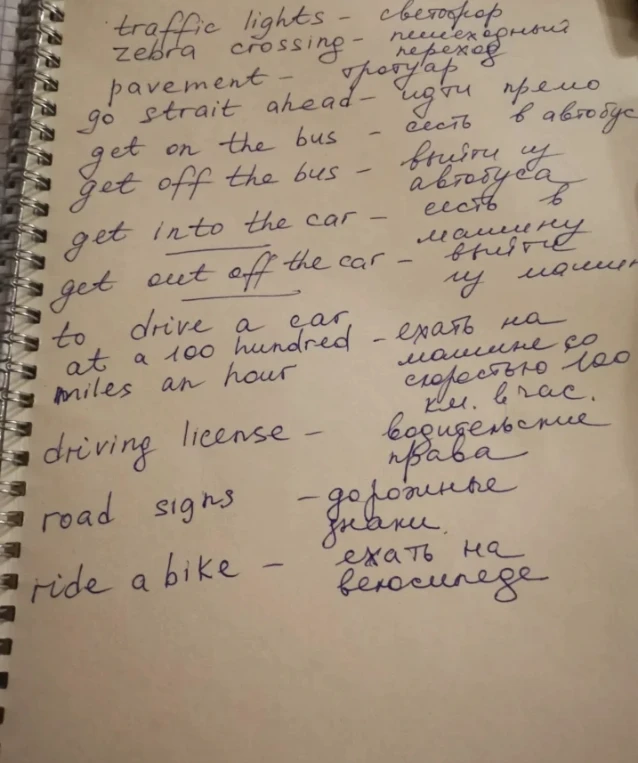 traffic lights - светофор
zebra crossing - пешеходный переход
pavement - тротуар
go strait ahead - идти прямо
get on the bus - сесть в автобус
get off the bus - выйти из автобуса
get into the car - сесть в машину
get out off the car - выйти из машин
to drive a car
at a 100 hundred - ехать на машине со
miles an hour скоростью 100 км. в час.
driving license - водительские права
road signs - дорожные знаки
ride a bike - ехать на велосипеде